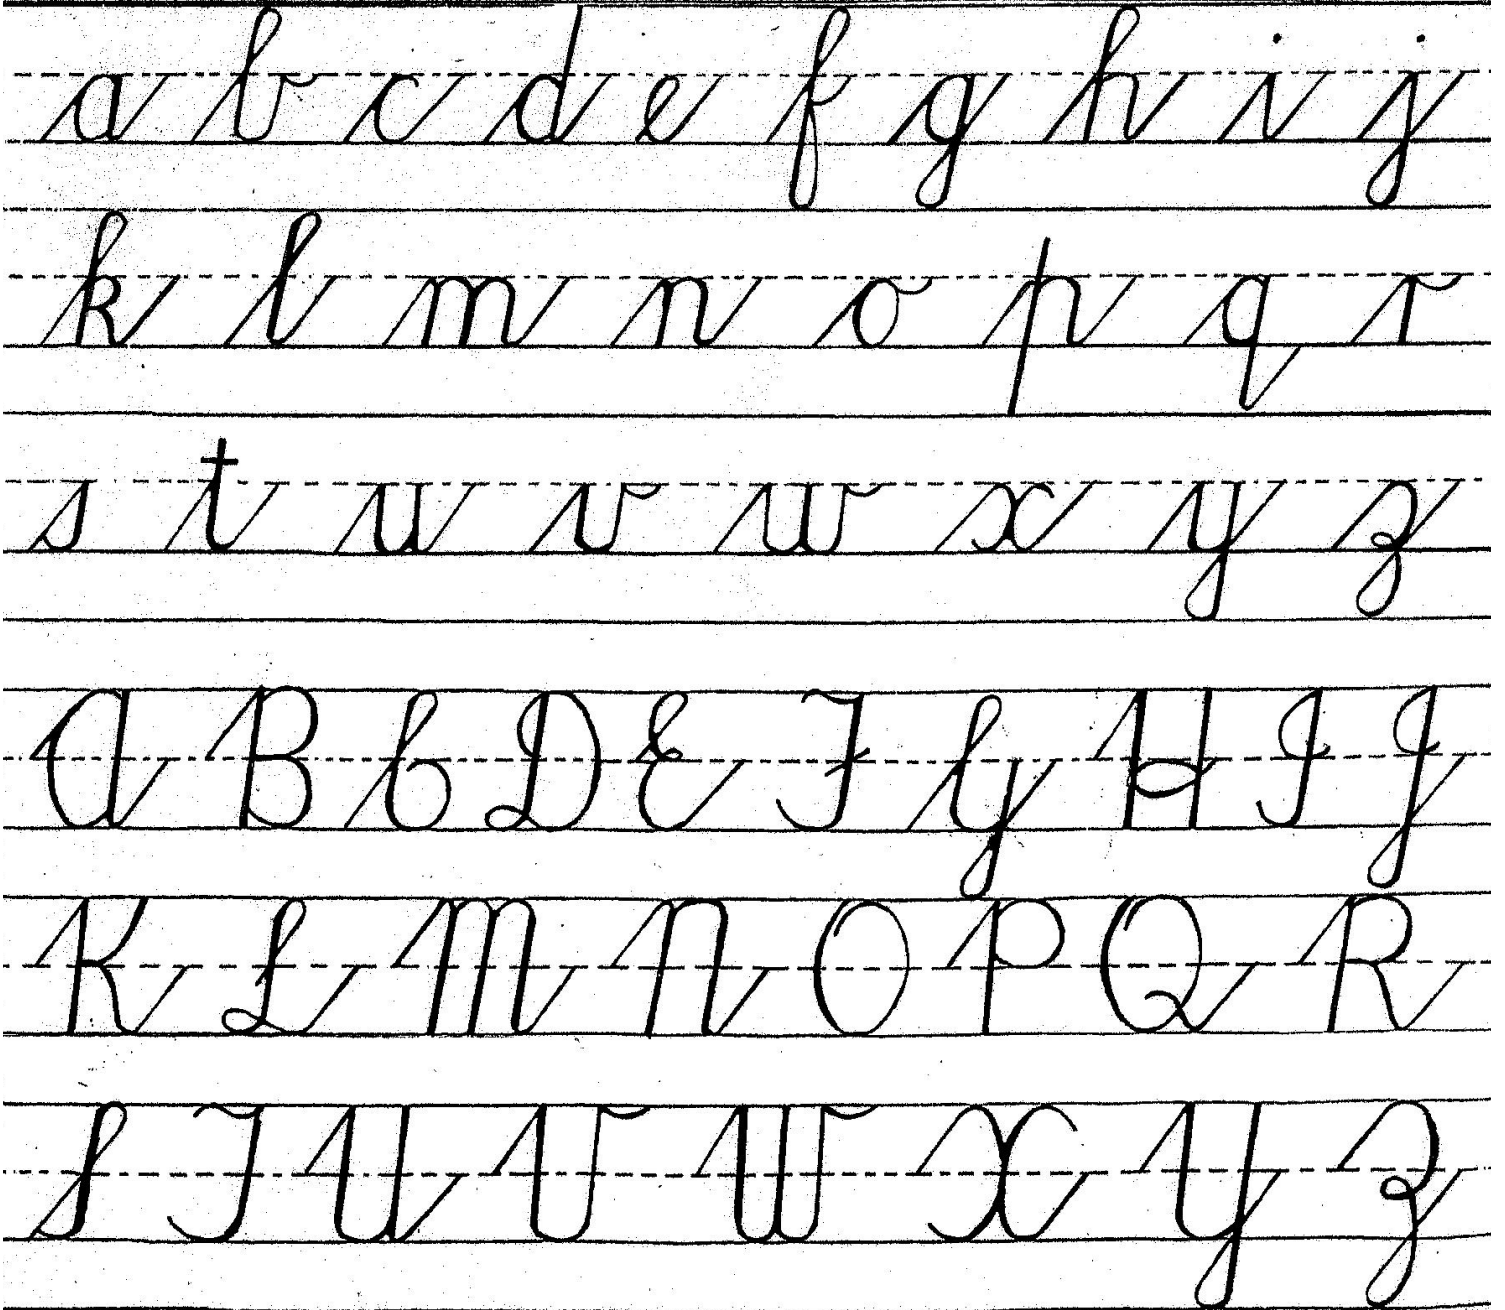 a b c d e f g h i j
k l m n o p q r
s t u v w x y z
A B C D E F G H I J
K L M N O P Q R
S T U V W X Y Z